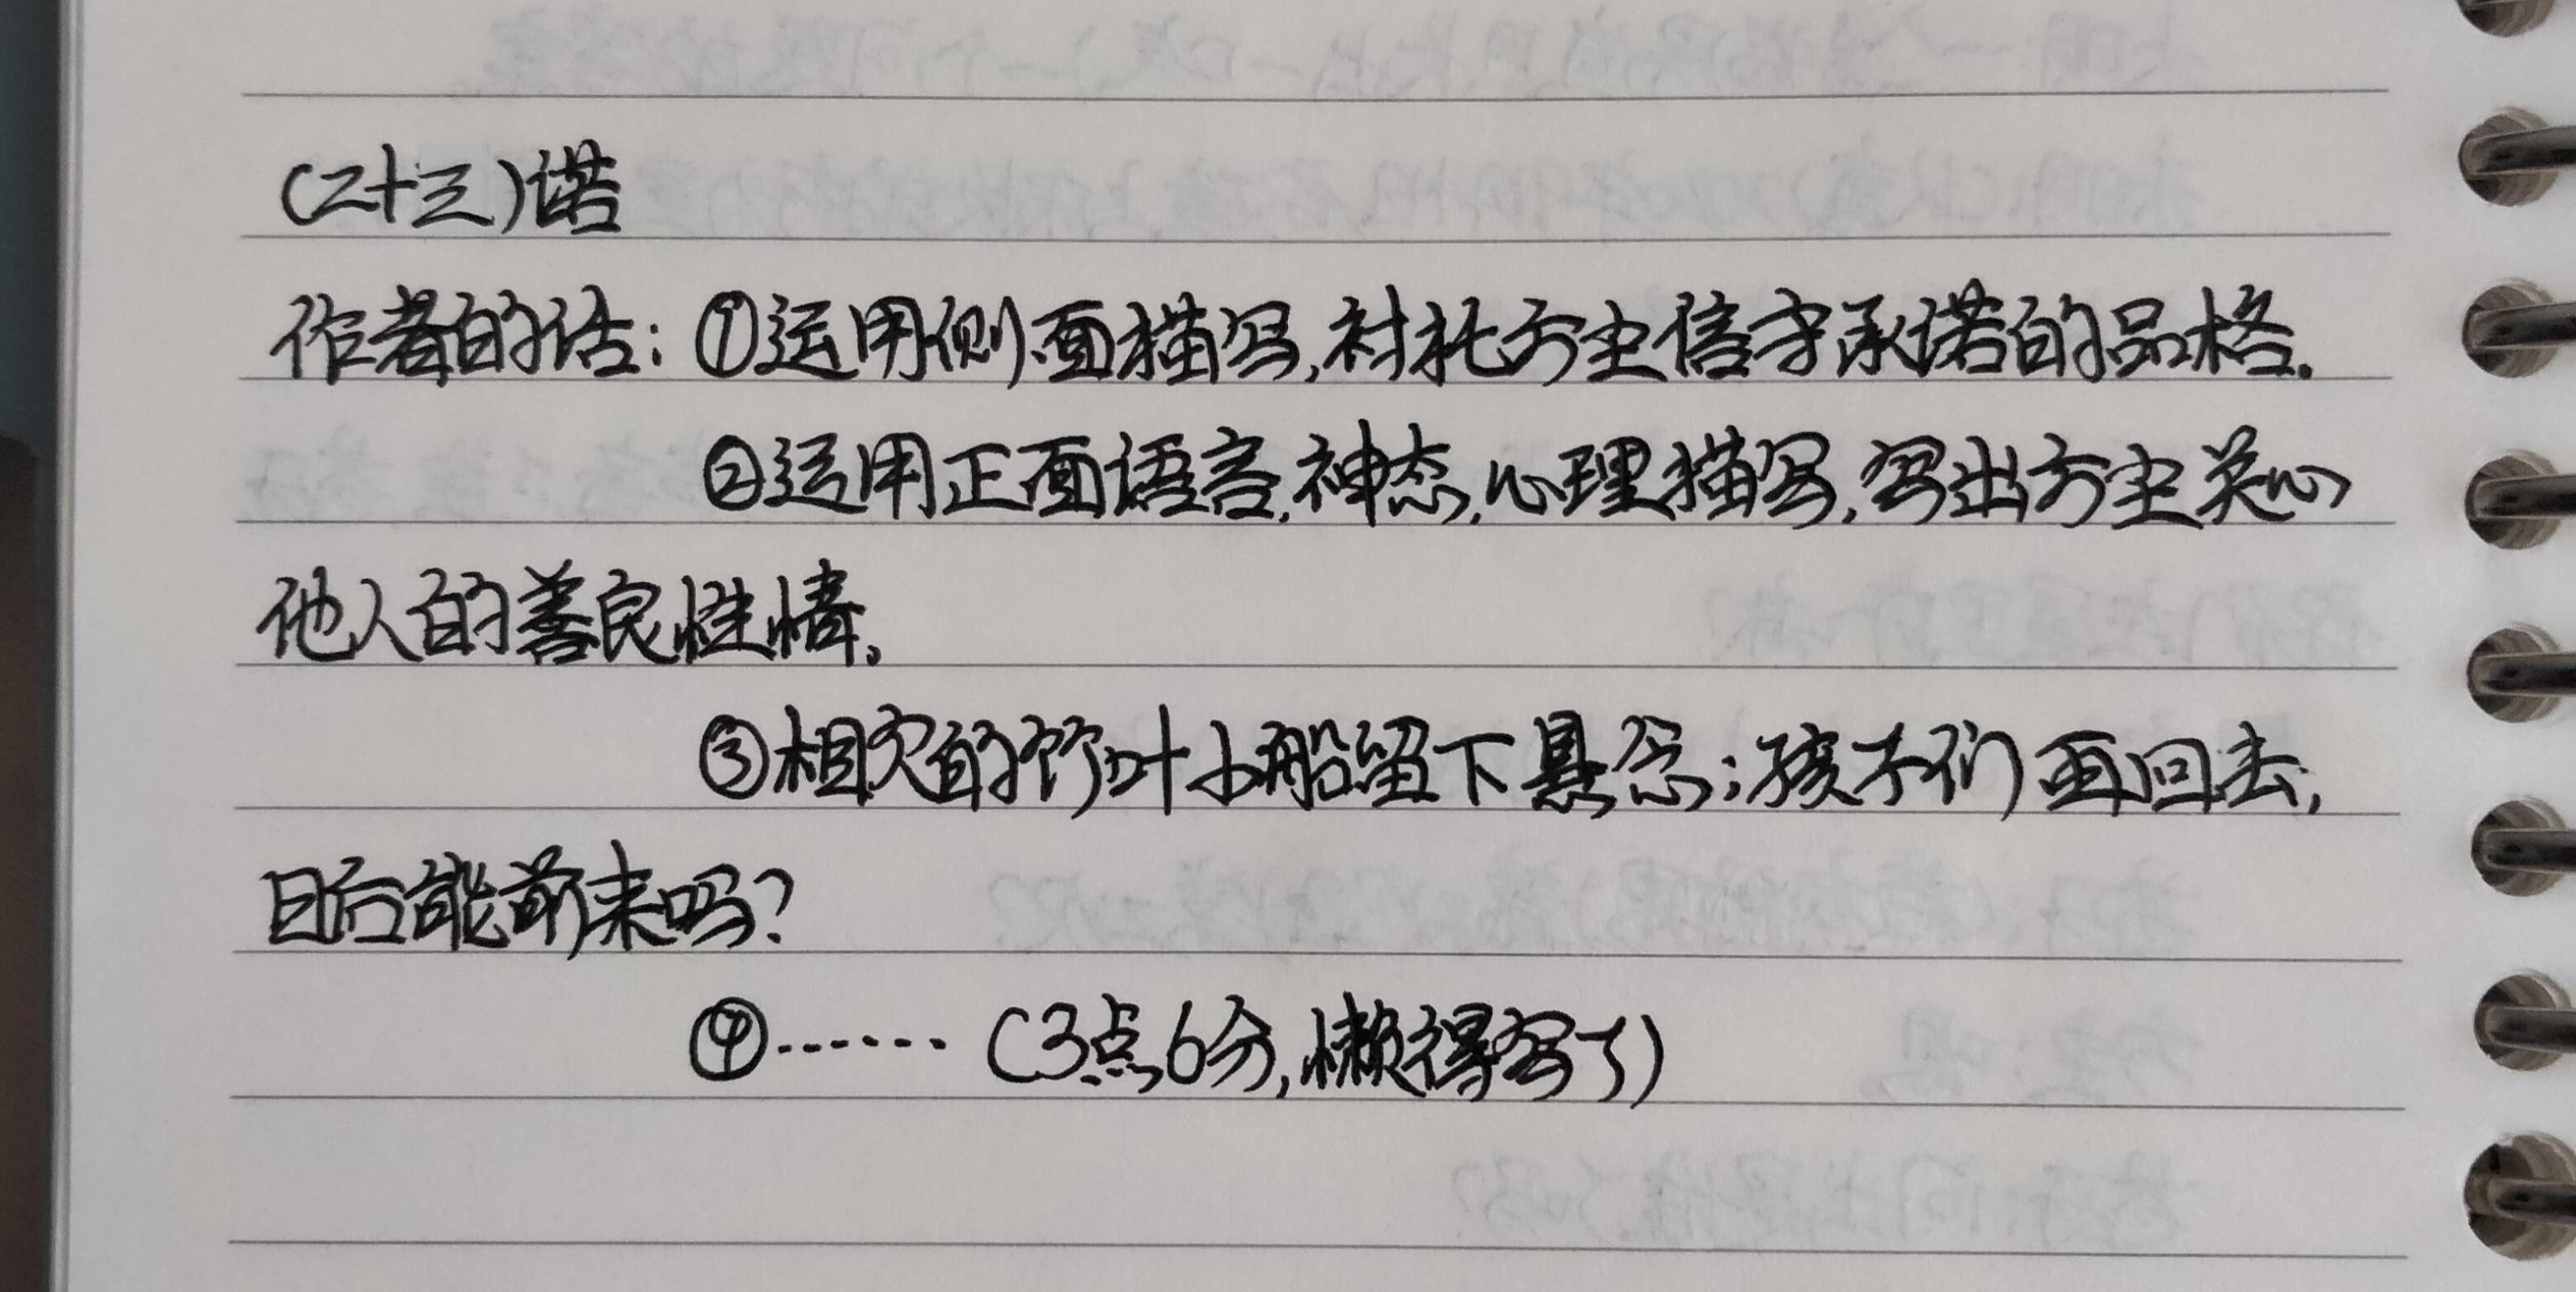 (二十三)诺
作者的话：①运用侧面描写,衬托方尘信守承诺的品格.
②运用正面语言,神态,心理描写,写出方尘关心
他人的善良性情。
③相欠的竹叶小船留下悬念;孩子们再回去,
日后能前来吗?
④······ (3点6分,懒得写了)